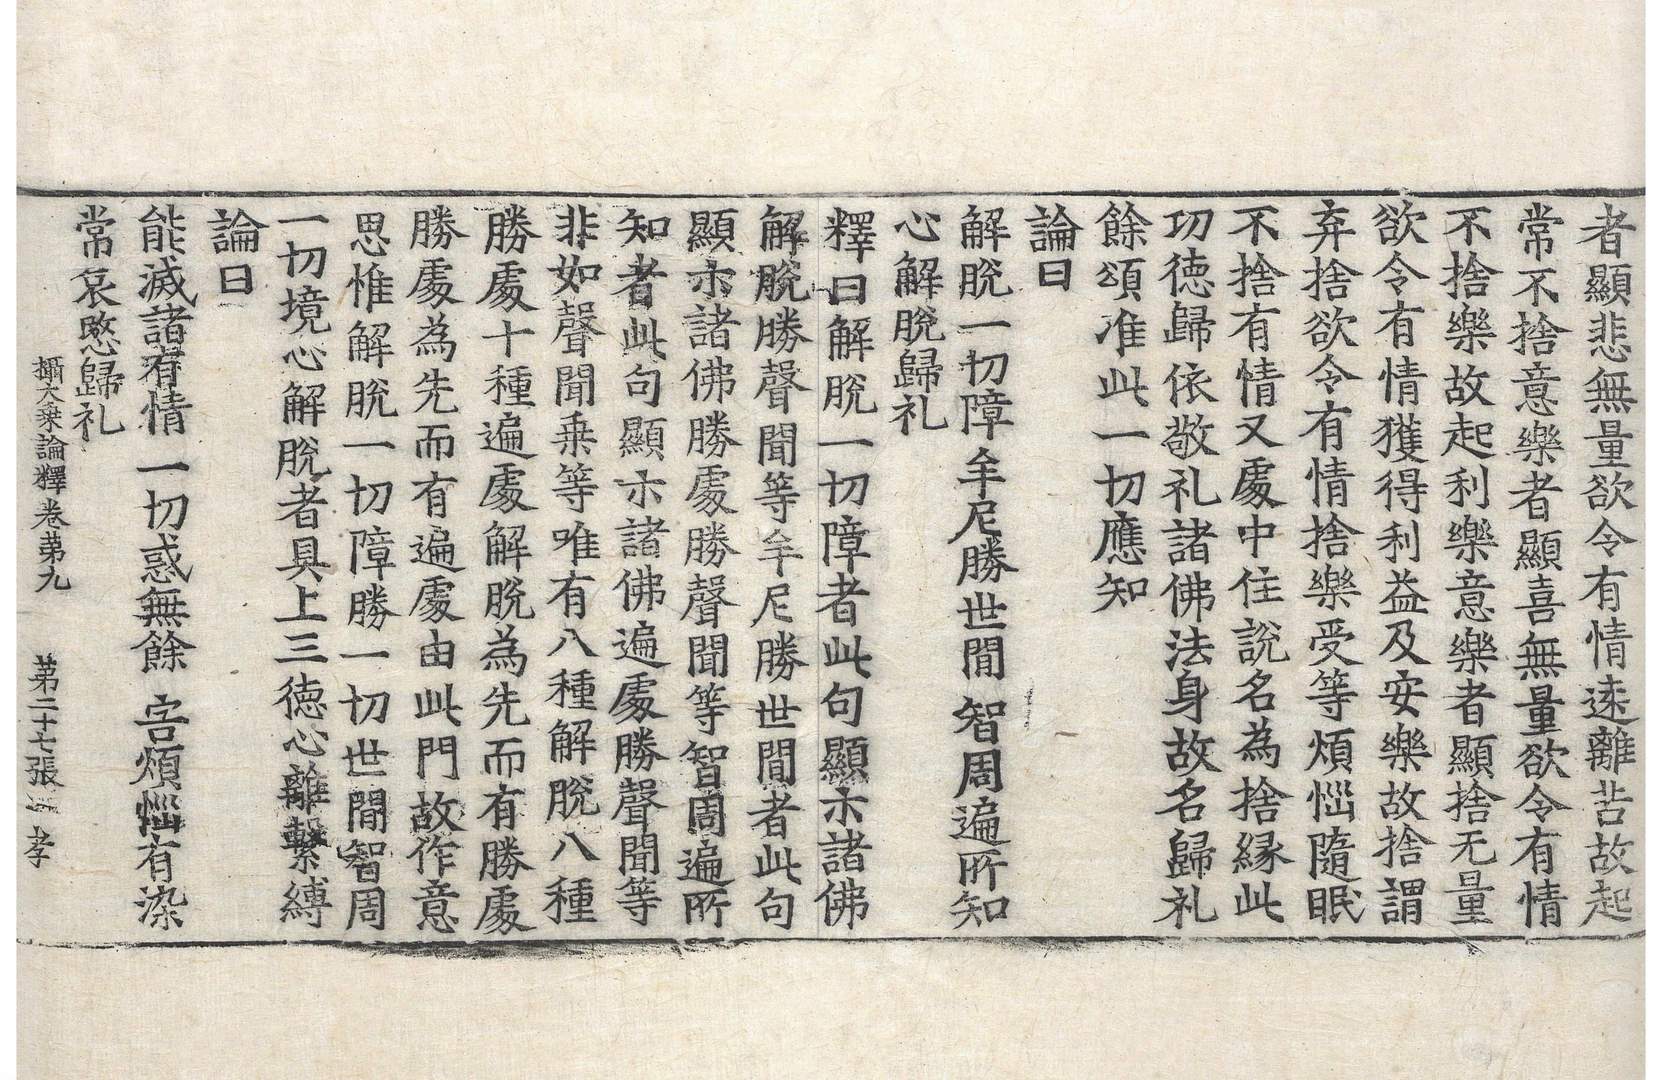 者顯悲無量欲令有情遠離苦故起
常不捨意樂者顯喜無量欲令有情
不捨樂故起利樂意樂者顯捨无量
欲令有情獲得利益及安樂故捨謂
弃捨欲令有情捨樂受等煩惱隨眠
不捨有情又處中住說名為捨緣此
功徳歸依敬礼諸佛法身故名歸礼
餘頌准此一切應知
論曰
解脫一切障牟尼勝世間智周遍所知
心解脫歸礼
釋曰解脫一切障者此句顯示諸佛
解脫勝聲聞等牟尼勝世間者此句
顯示諸佛勝處勝聲聞等智周遍所
知者此句顯示諸佛遍處勝聲聞等
非如聲聞乗等唯有八種解脫八種
勝處十種遍處解脫為先而有勝處
勝處為先而有遍處由此門故作意
思惟解脫一切障勝一切世間智周
一切境心解脫者具上三徳心離繫縛
論曰
能滅諸有情一切惑無餘害煩惱有染
常哀愍歸礼
攝大乗論釋卷第九 第二十七張 孝